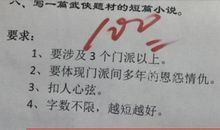 六、写一篇武侠题材的短篇小说。
100
要求：
1、要涉及3个门派以上。
2、要体现门派间多年的恩怨情仇。
3、扣人心弦。
4、字数不限，越短越好。